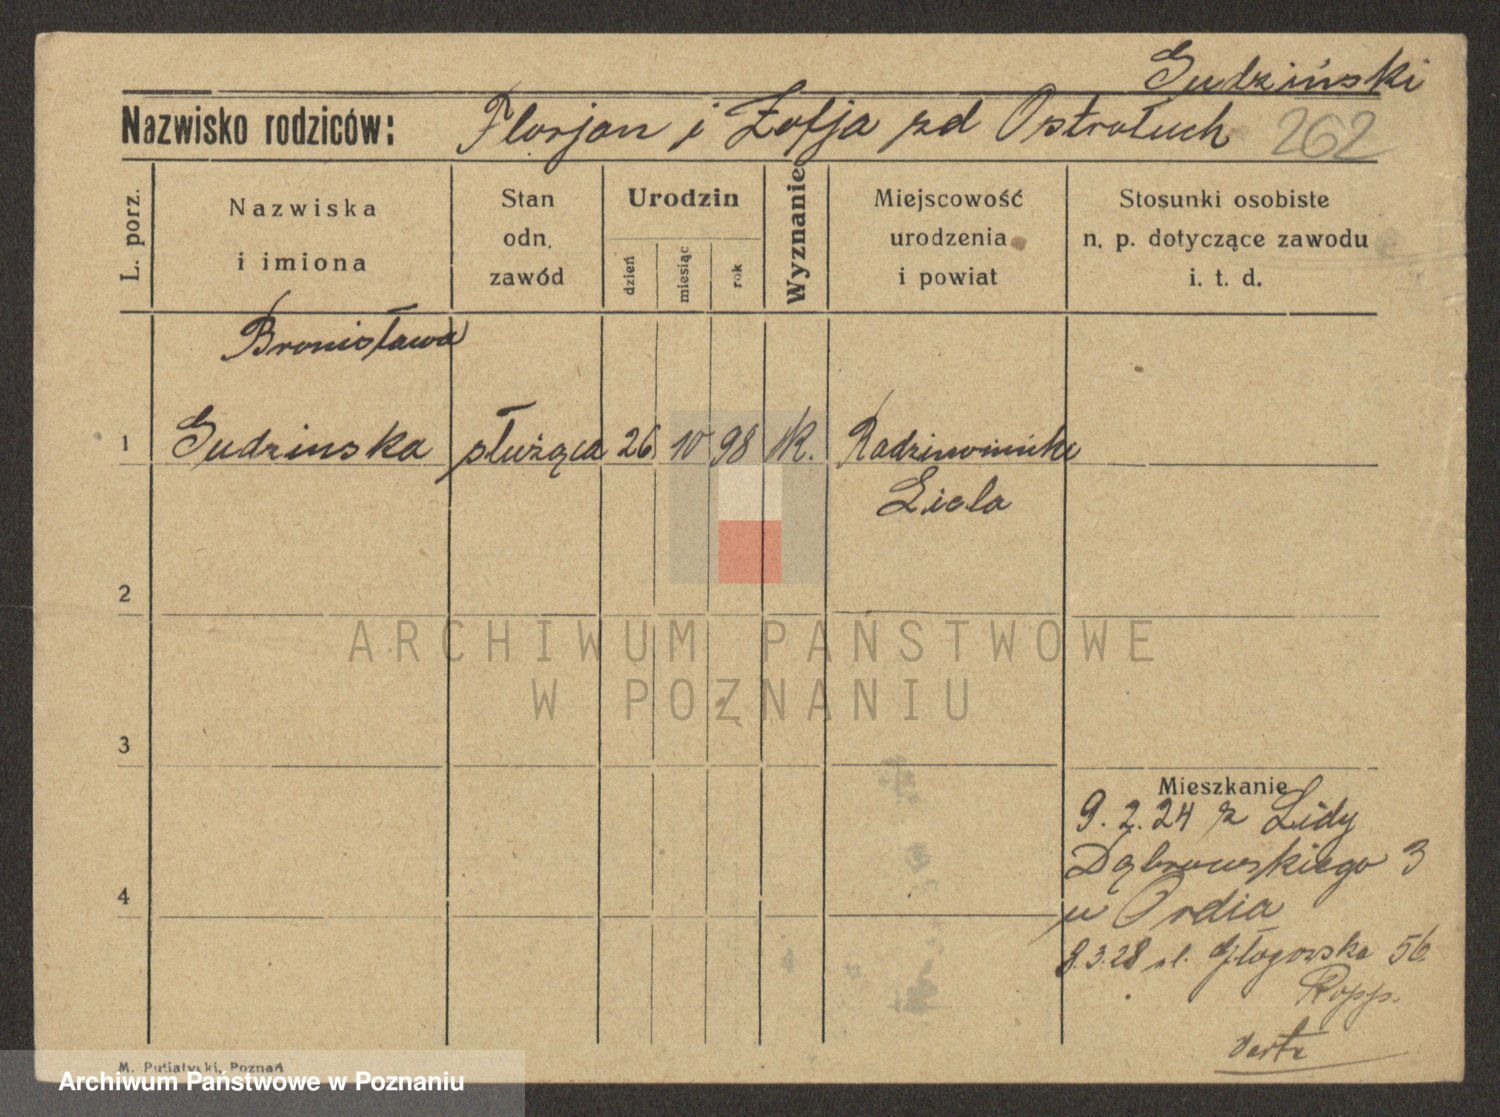 Gudziński
Nazwisko rodziców: Florjan i Zofja zd Ostrołuch 262
L. porz.
Nazwiska
i imiona
Stan
odn.
zawód
Urodzin
dzień
miesiąc
rok
Wyznanie
Miejscowość
urodzenia
i powiat
Stosunki osobiste
n. p. dotyczące zawodu
i. t. d.
Bronisława
1 Gudzinska służąca 26 10 98 rK.
Lida
2
ARCHIWUM PAŃSTWOWE
W POZNANIU
3
Mieszkanie
9.2.24 z Lidy
Dąbrowskiego 3
4
u Ordia
8.3.28 ul. Głogowska 56
Ropp.
M. Putiatycki, Poznań
Archiwum Państwowe w Poznaniu